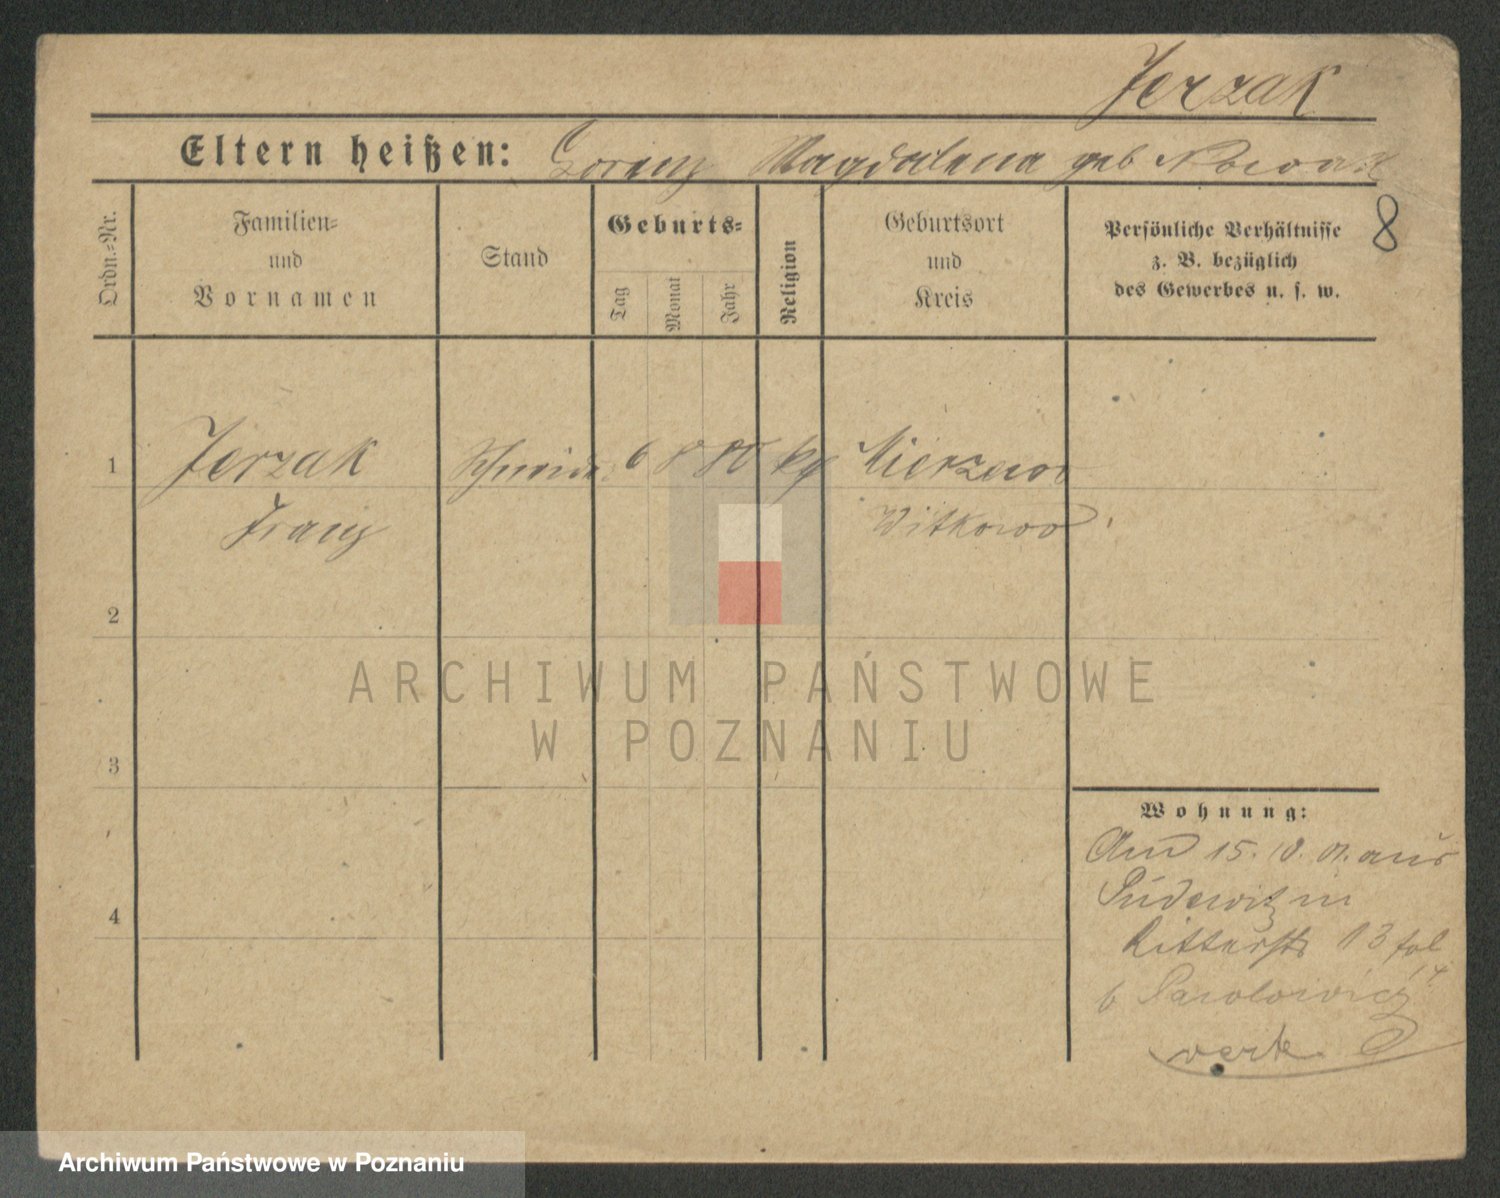 Jerzak
Eltern heißen: Lorenz Magdalena geb Nowak
8
Ordn.=Nr.
Familien=
und
Vornamen
Stand
Geburts=
Tag
Monat
Jahr
Religion
Geburtsort
und
Kreis
Persönliche Verhältnisse
z. B. bezüglich
des Gewerbes u. s. w.
1
Jerzak 6 8 80 kg Mierzewo
Franz Witkowo
2
ARCHIWUM PAŃSTWOWE
W POZNANIU
3
Wohnung:
Am 15. 10. 01. aus
Pudewitz in
4
Ritterstr 13
b Pawlowicz
verte
Archiwum Państwowe w Poznaniu